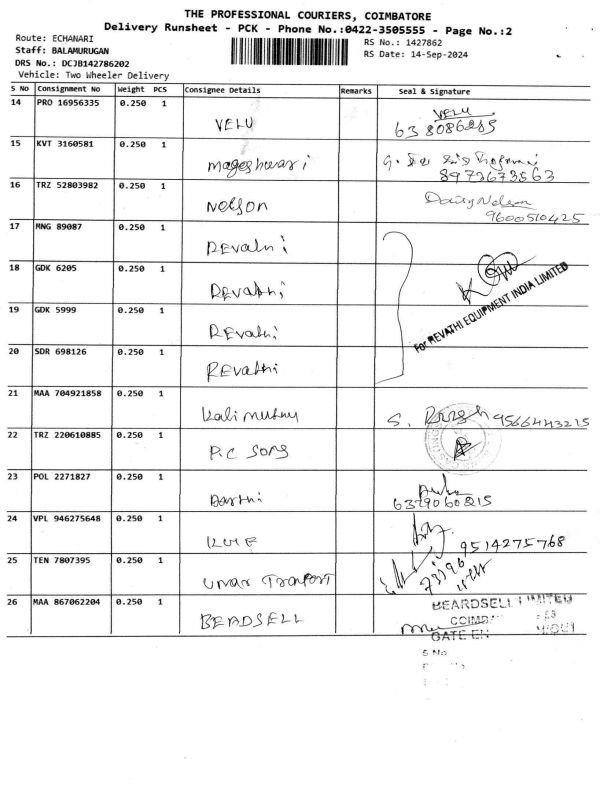 THE PROFESSIONAL COURIERS, COIMBATORE
Delivery Runsheet - PCK - Phone No.:0422-3505555 - Page No.:2
Route: ECHANARI
RS No.: 1427862
Staff: BALAMURUGAN
RS Date: 14-Sep-2024
DRS No.: DCJB142786202
Vehicle: Two Wheeler Delivery
S No Consignment No Weight PCS Consignee Details Remarks Seal & Signature
14 PRO 16956335 0.250 1 VELU VELU
638086285
15 KVT 3160581 0.250 1 Mageshwari
8973673563
16 TRZ 52803982 0.250 1 Nelson Daisy Nelson
9600510425
17 MNG 89087 0.250 1 Revathi
18 GDK 6205 0.250 1 Revathi
For REVATHI EQUIPMENT INDIA LIMITED
19 GDK 5999 0.250 1 Revathi
20 SDR 698126 0.250 1 Revathi
21 MAA 704921858 0.250 1 Kalimuthu S. 9566443215
22 TRZ 220610885 0.250 1 P.C SONS
23 POL 2271827 0.250 1 6379060815
24 VPL 946275648 0.250 1 9514275768
25 TEN 7807395 0.250 1
26 MAA 867062204 0.250 1 BEADSELL BEARDSELL LIMITED
GATE
S No